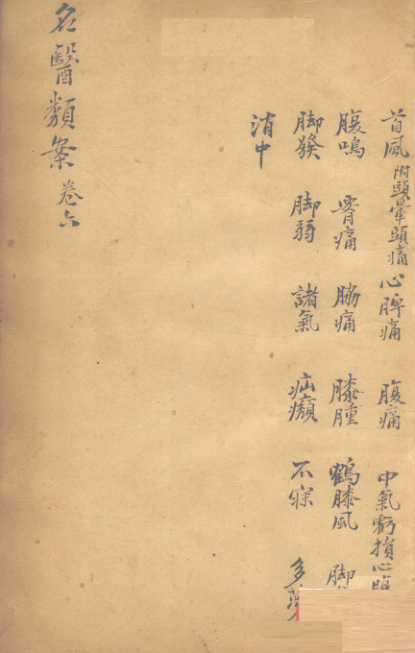 名醫類案 卷六
首風 附頭暈頭痛 心脾痛 腹痛 中氣虧損心
腹鳴 脊痛 脇痛 膝腫 鶴膝風 脚
脚發 脚弱 諸氣 疝㿗 不寐 多
消中